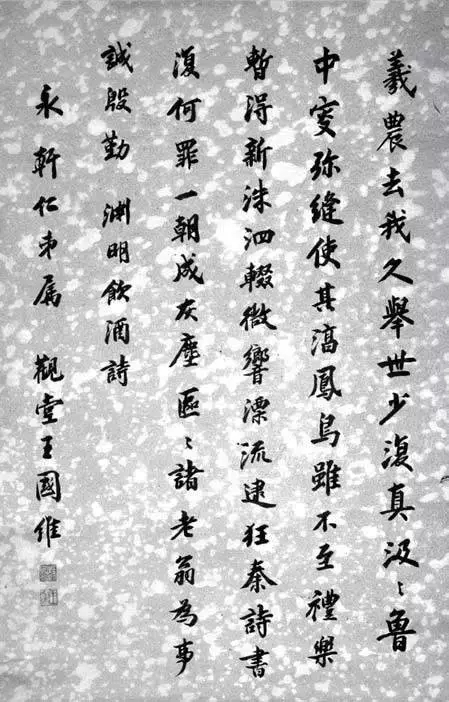 羲農去我久舉世少復真汲〻魯
中叟弥縫使其湻鳳鳥雖不至禮樂
暫得新洙泗輟微響漂流逮狂秦詩書
復何罪一朝成灰塵區〻諸老翁為事
誠殷勤 淵明飲酒詩
永軒仁弟属 觀堂王國維